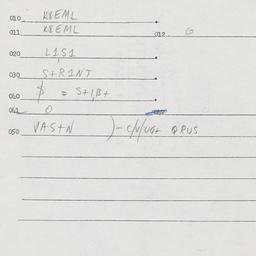 010 K8EML
011 K8EML 012 0
020 L1,S1
030 S+R1NT
040 $ = S+1,B+
041 0
050 VAS+N